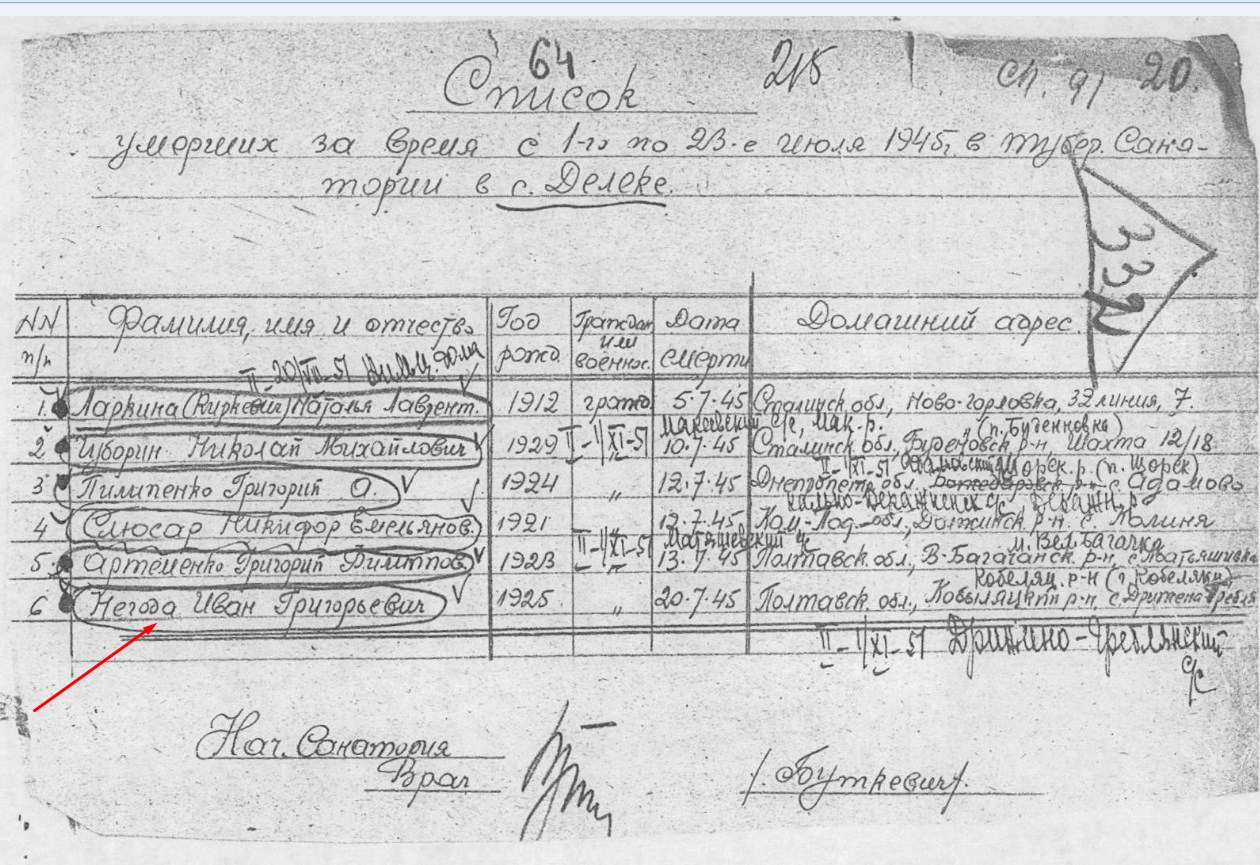 64 218 сп. 91 20.
Список
умерших за время с 1-го по 23-е июля 1945г. в тубер. Сана-
тории в с. Делеке.
332
NN п/п Фамилия, имя и отчество Год рожд Граждан. или военносл. Дата смерти Домашний адрес
II-20/VII-51
1. Ларкина (Киркевич) Наталья Лаврент. 1912 гражд 5.7.45 Сталинск. обл., Ново-горловка, 32 линия, 7.
Макеевский с/с, Мак. р. (п. Буденновка)
2 Изборин Николай Михайлович 1929 II-1/XI-51 10.7.45 Сталинск. обл., Буденовск. р-н, Шахта 12/18
II-1/XI-51 Щорск. р. (п. Щорск)
3 Пилипенко Григорий О. 1924 " 12.7.45 Днепропетр. обл. р-н с. Адамово
с/с Деражн. р.
4 Слюсар Никифор Емельянов. 1921 12.7.45 Кам-Под. обл., р-н с.
II-1/XI-51 Матяшевский с/с м. Вел. Багачка
5. Артеменко Григорий Филиппов. 1923 13.7.45 Полтавск. обл., В-Багачанск. р-н, с. Матяшивка
Кобеляц. р-н (г. Кобеляки)
6 Негода Иван Григорьевич 1925 " 20.7.45 Полтавск. обл., Кобыляцкий р-н, с. Дрижена Гребля
II-1/XI-51 Дрижино-Греблянский
с/с
Нач. Санатория
Врач /.Буткевич/.